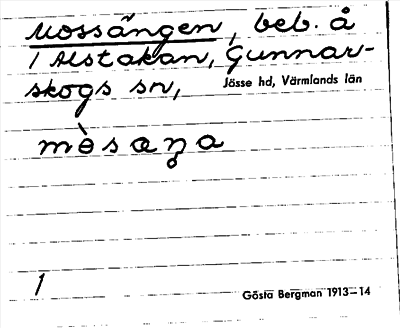 Mossängen, beb. å
1 Alstakan, Gunnar-
skogs sn,
Jösse hd, Värmlands län
mèsaŋ̥a
1
Gösta Bergman 1913–14